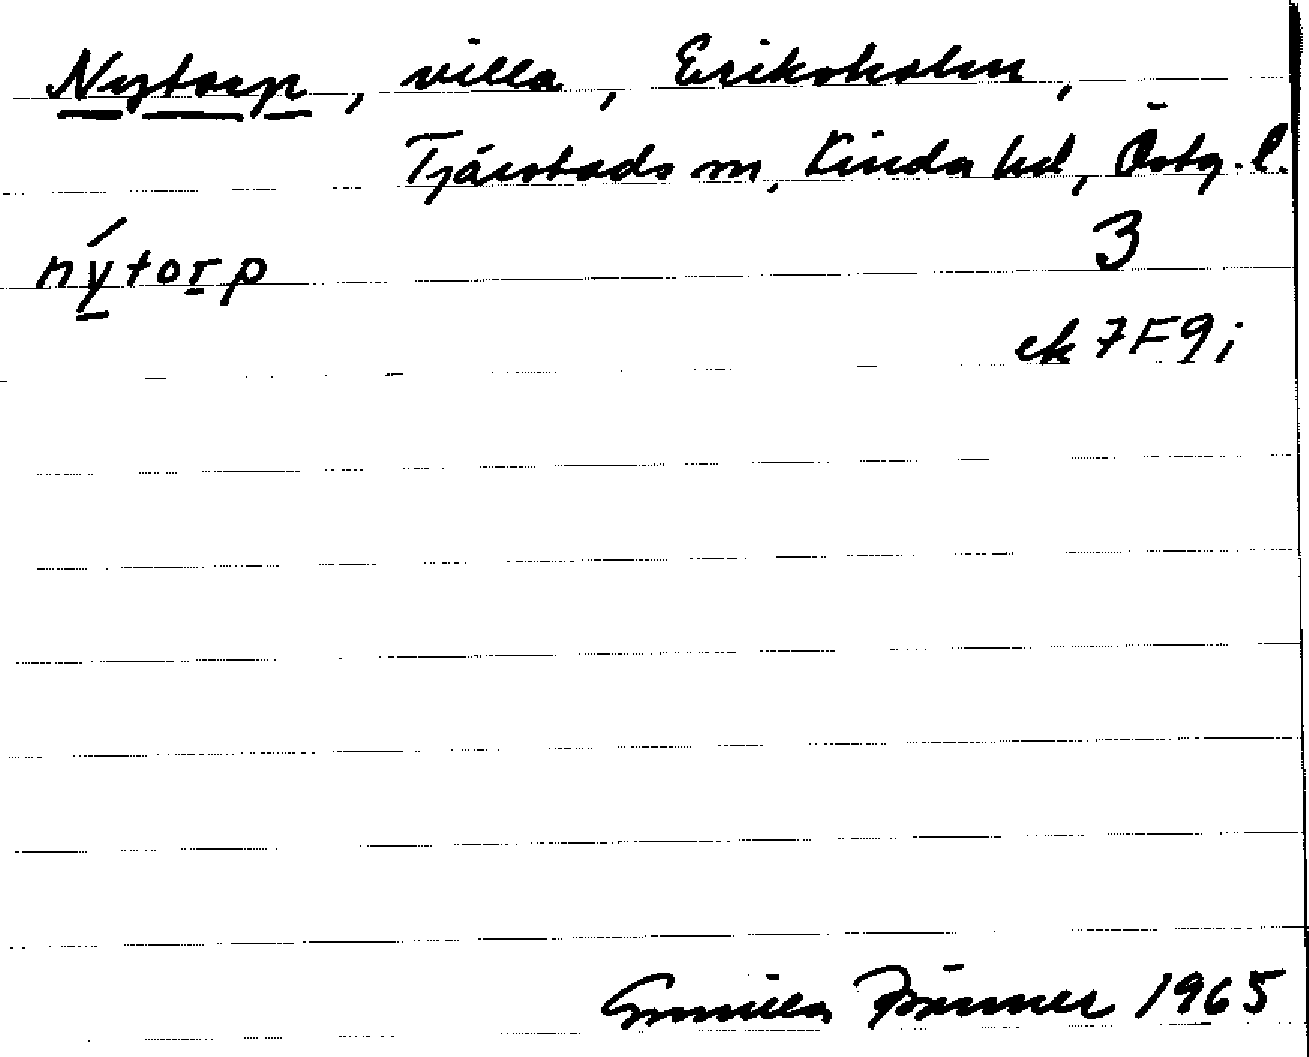 Nytorp, villa, Eriksholm,
Tjärstads sn, Kinda hd, Östg. l.
nýtorp 3
ek 7F9i
Gunilla Fränner 1965